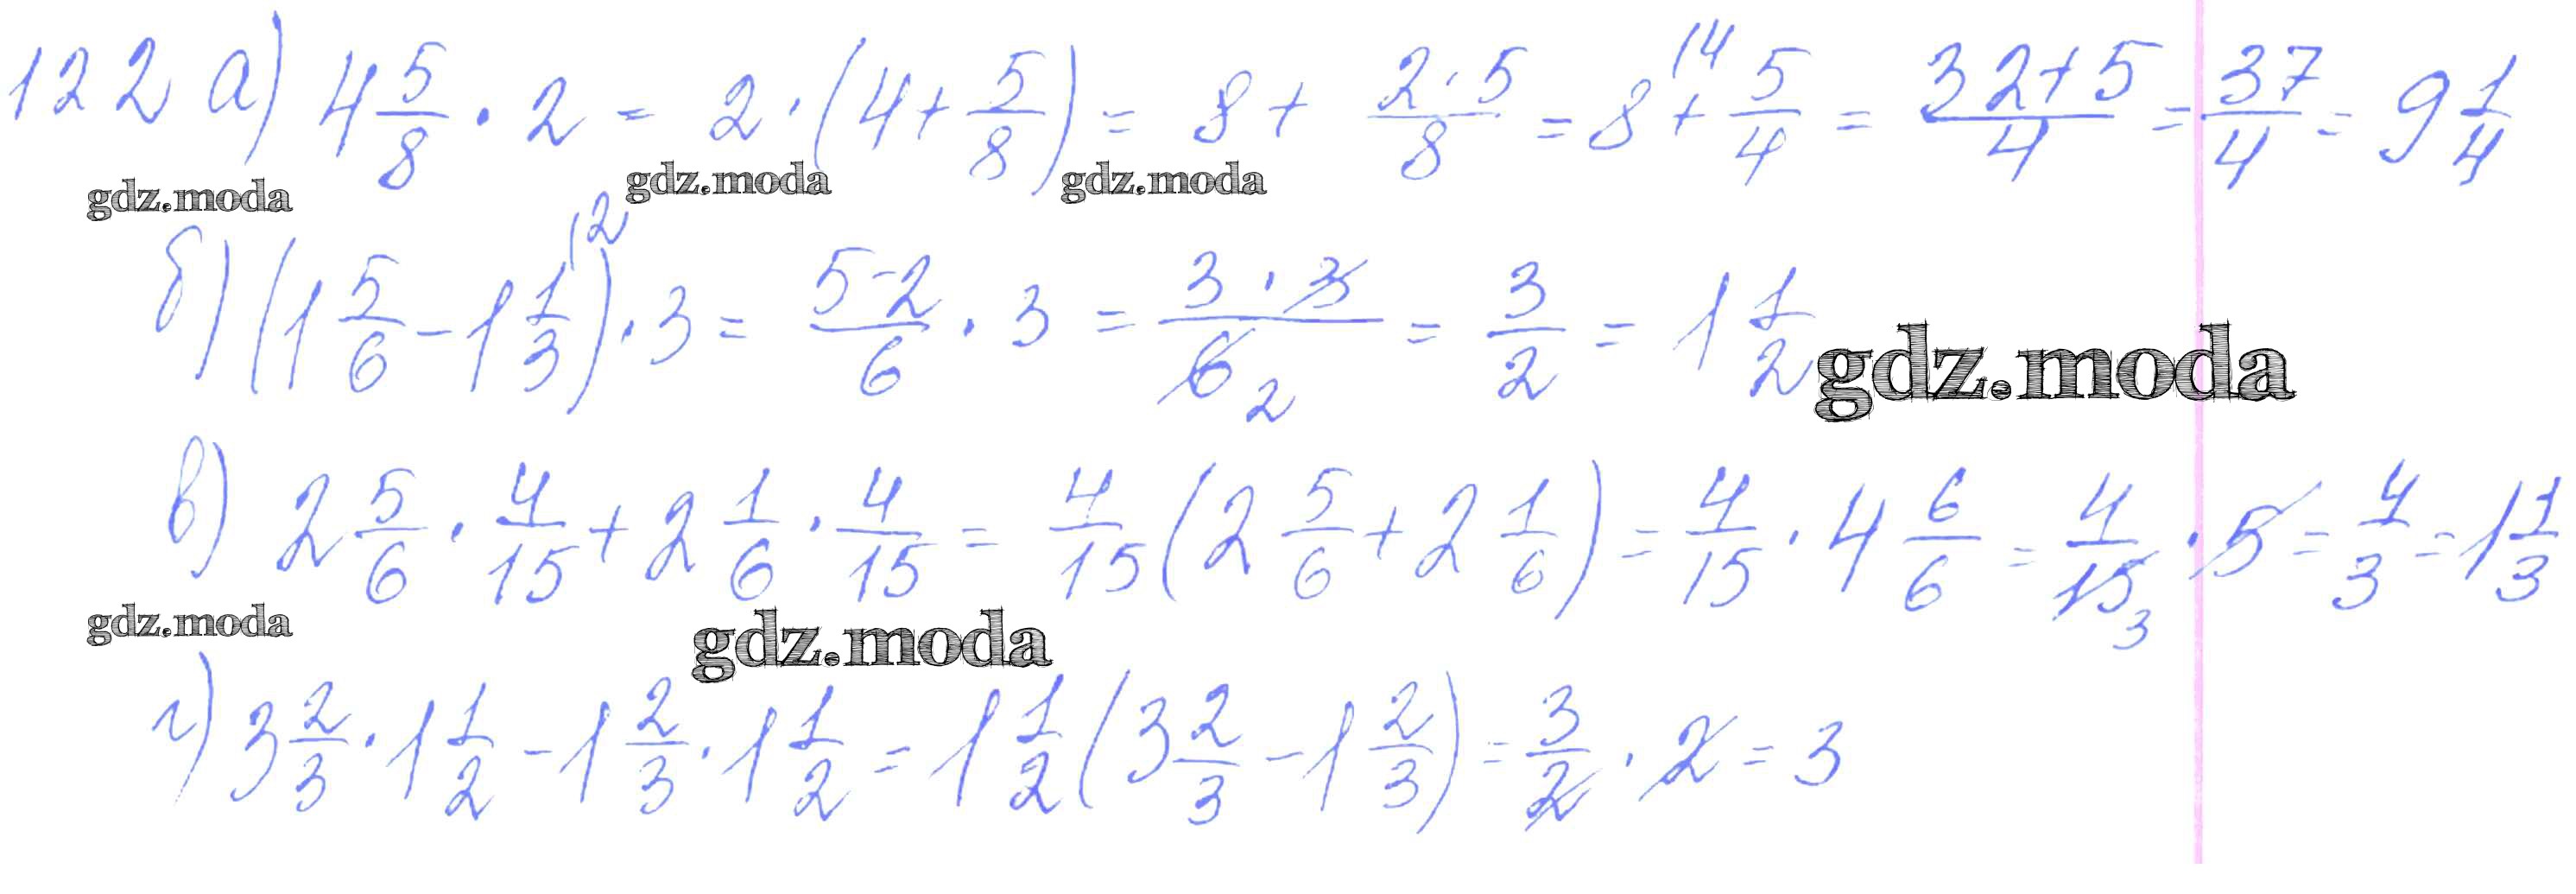 122 а) 4 5/8 · 2 = 2 · (4 + 5/8) = 8 + 2·5/8 = 8 \4 + 5/4 = 32+5/4 = 37/4 = 9 1/4
gdz.moda gdz.moda gdz.moda
б) (1 5/6 - 1 1/3 \2) · 3 = 5-2/6 · 3 = 3·3/6 2 = 3/2 = 1 1/2
gdz.moda
в) 2 5/6 · 4/15 + 2 1/6 · 4/15 = 4/15 (2 5/6 + 2 1/6) = 4/15 · 4 6/6 = 4/15 3 · 5 = 4/3 = 1 1/3
gdz.moda gdz.moda
г) 3 2/3 · 1 1/2 - 1 2/3 · 1 1/2 = 1 1/2 (3 2/3 - 1 2/3) = 3/2 · 2 = 3